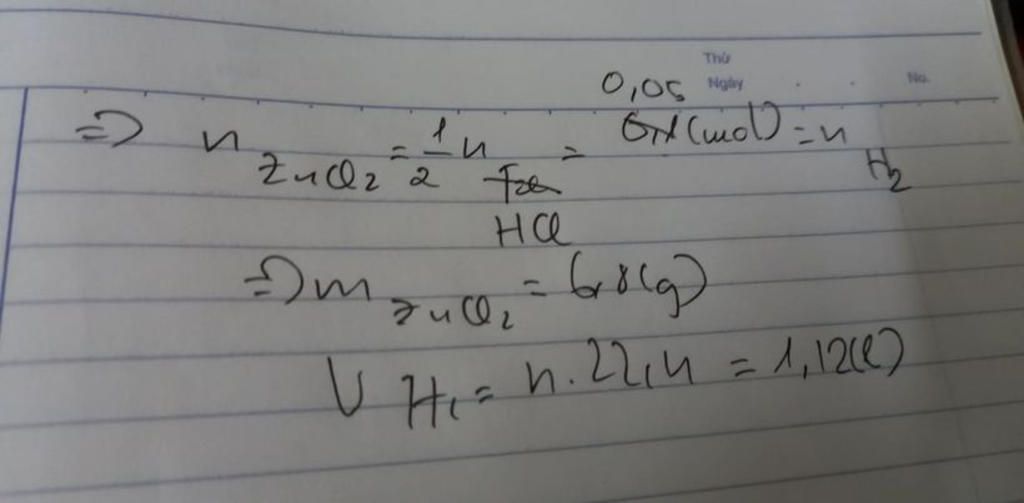 Thứ
Ngày No.
0,05
=> n ZnCl2 = 1/2 n HCl = (mol) = n H2
=> m ZnCl2 = 6,8(g)
V H2 = n.22,4 = 1,12(l)